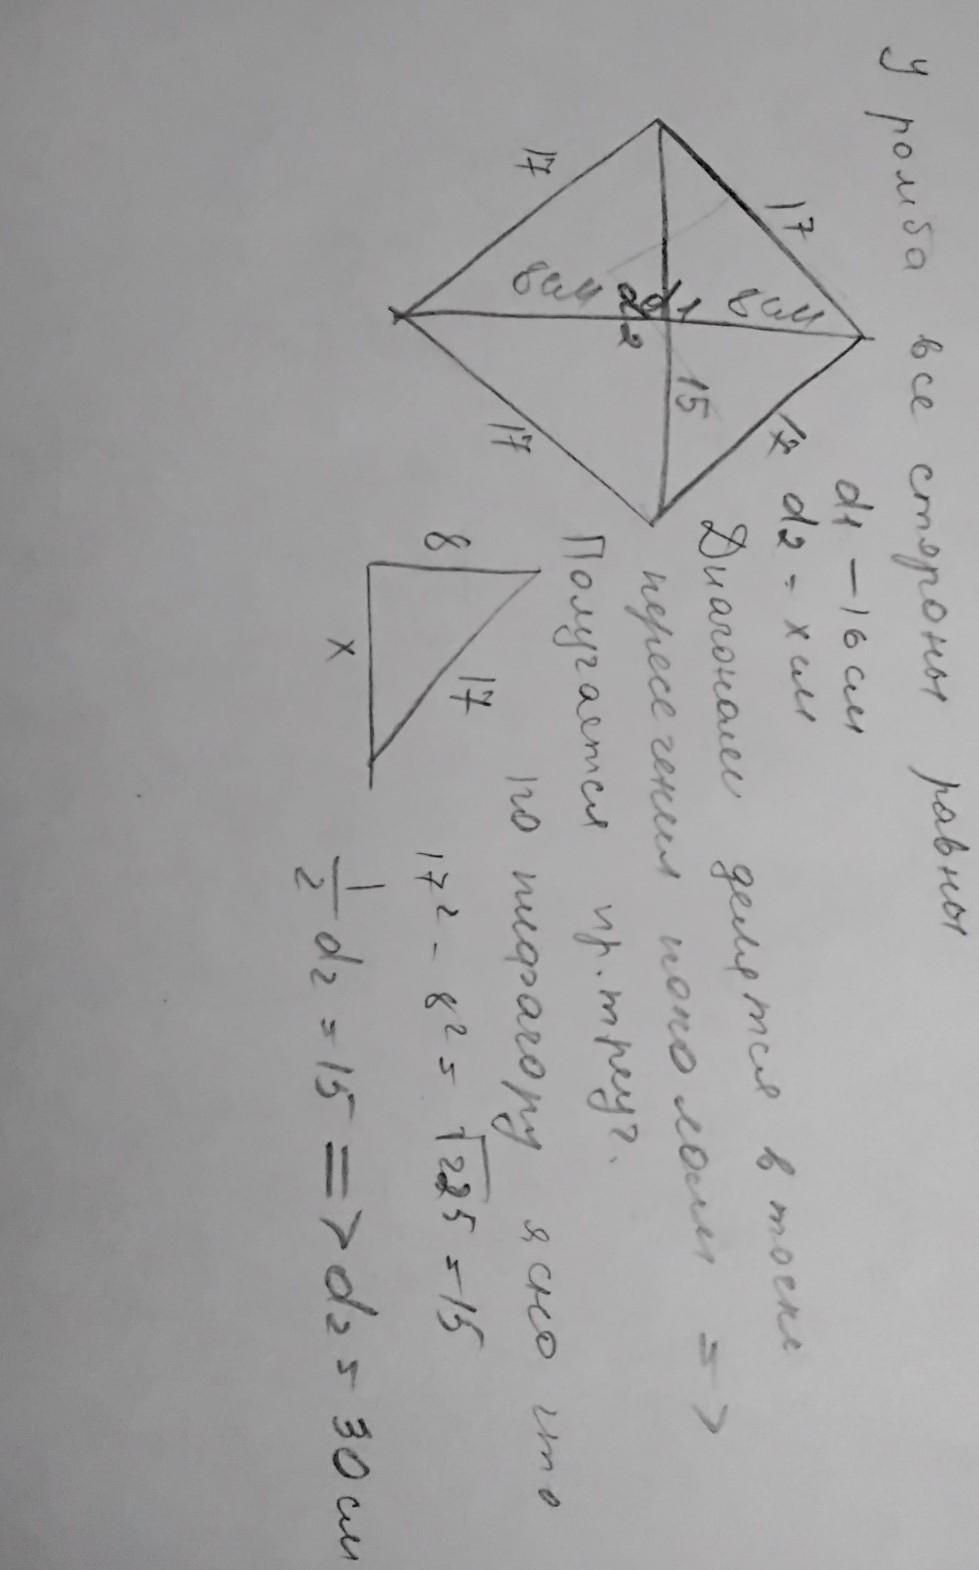 У ромба все стороны равны
d1 - 16 см
d2 = x см
17
17
8 см
8 см
d1
d2
15
17
17
Диагонали делятся в точке
пересечения пополам =>
Получается пр. треуг.
8
17
x
по пифагору ясно что
17² - 8² = √225 = 15
1/2 d2 = 15 => d2 = 30 см